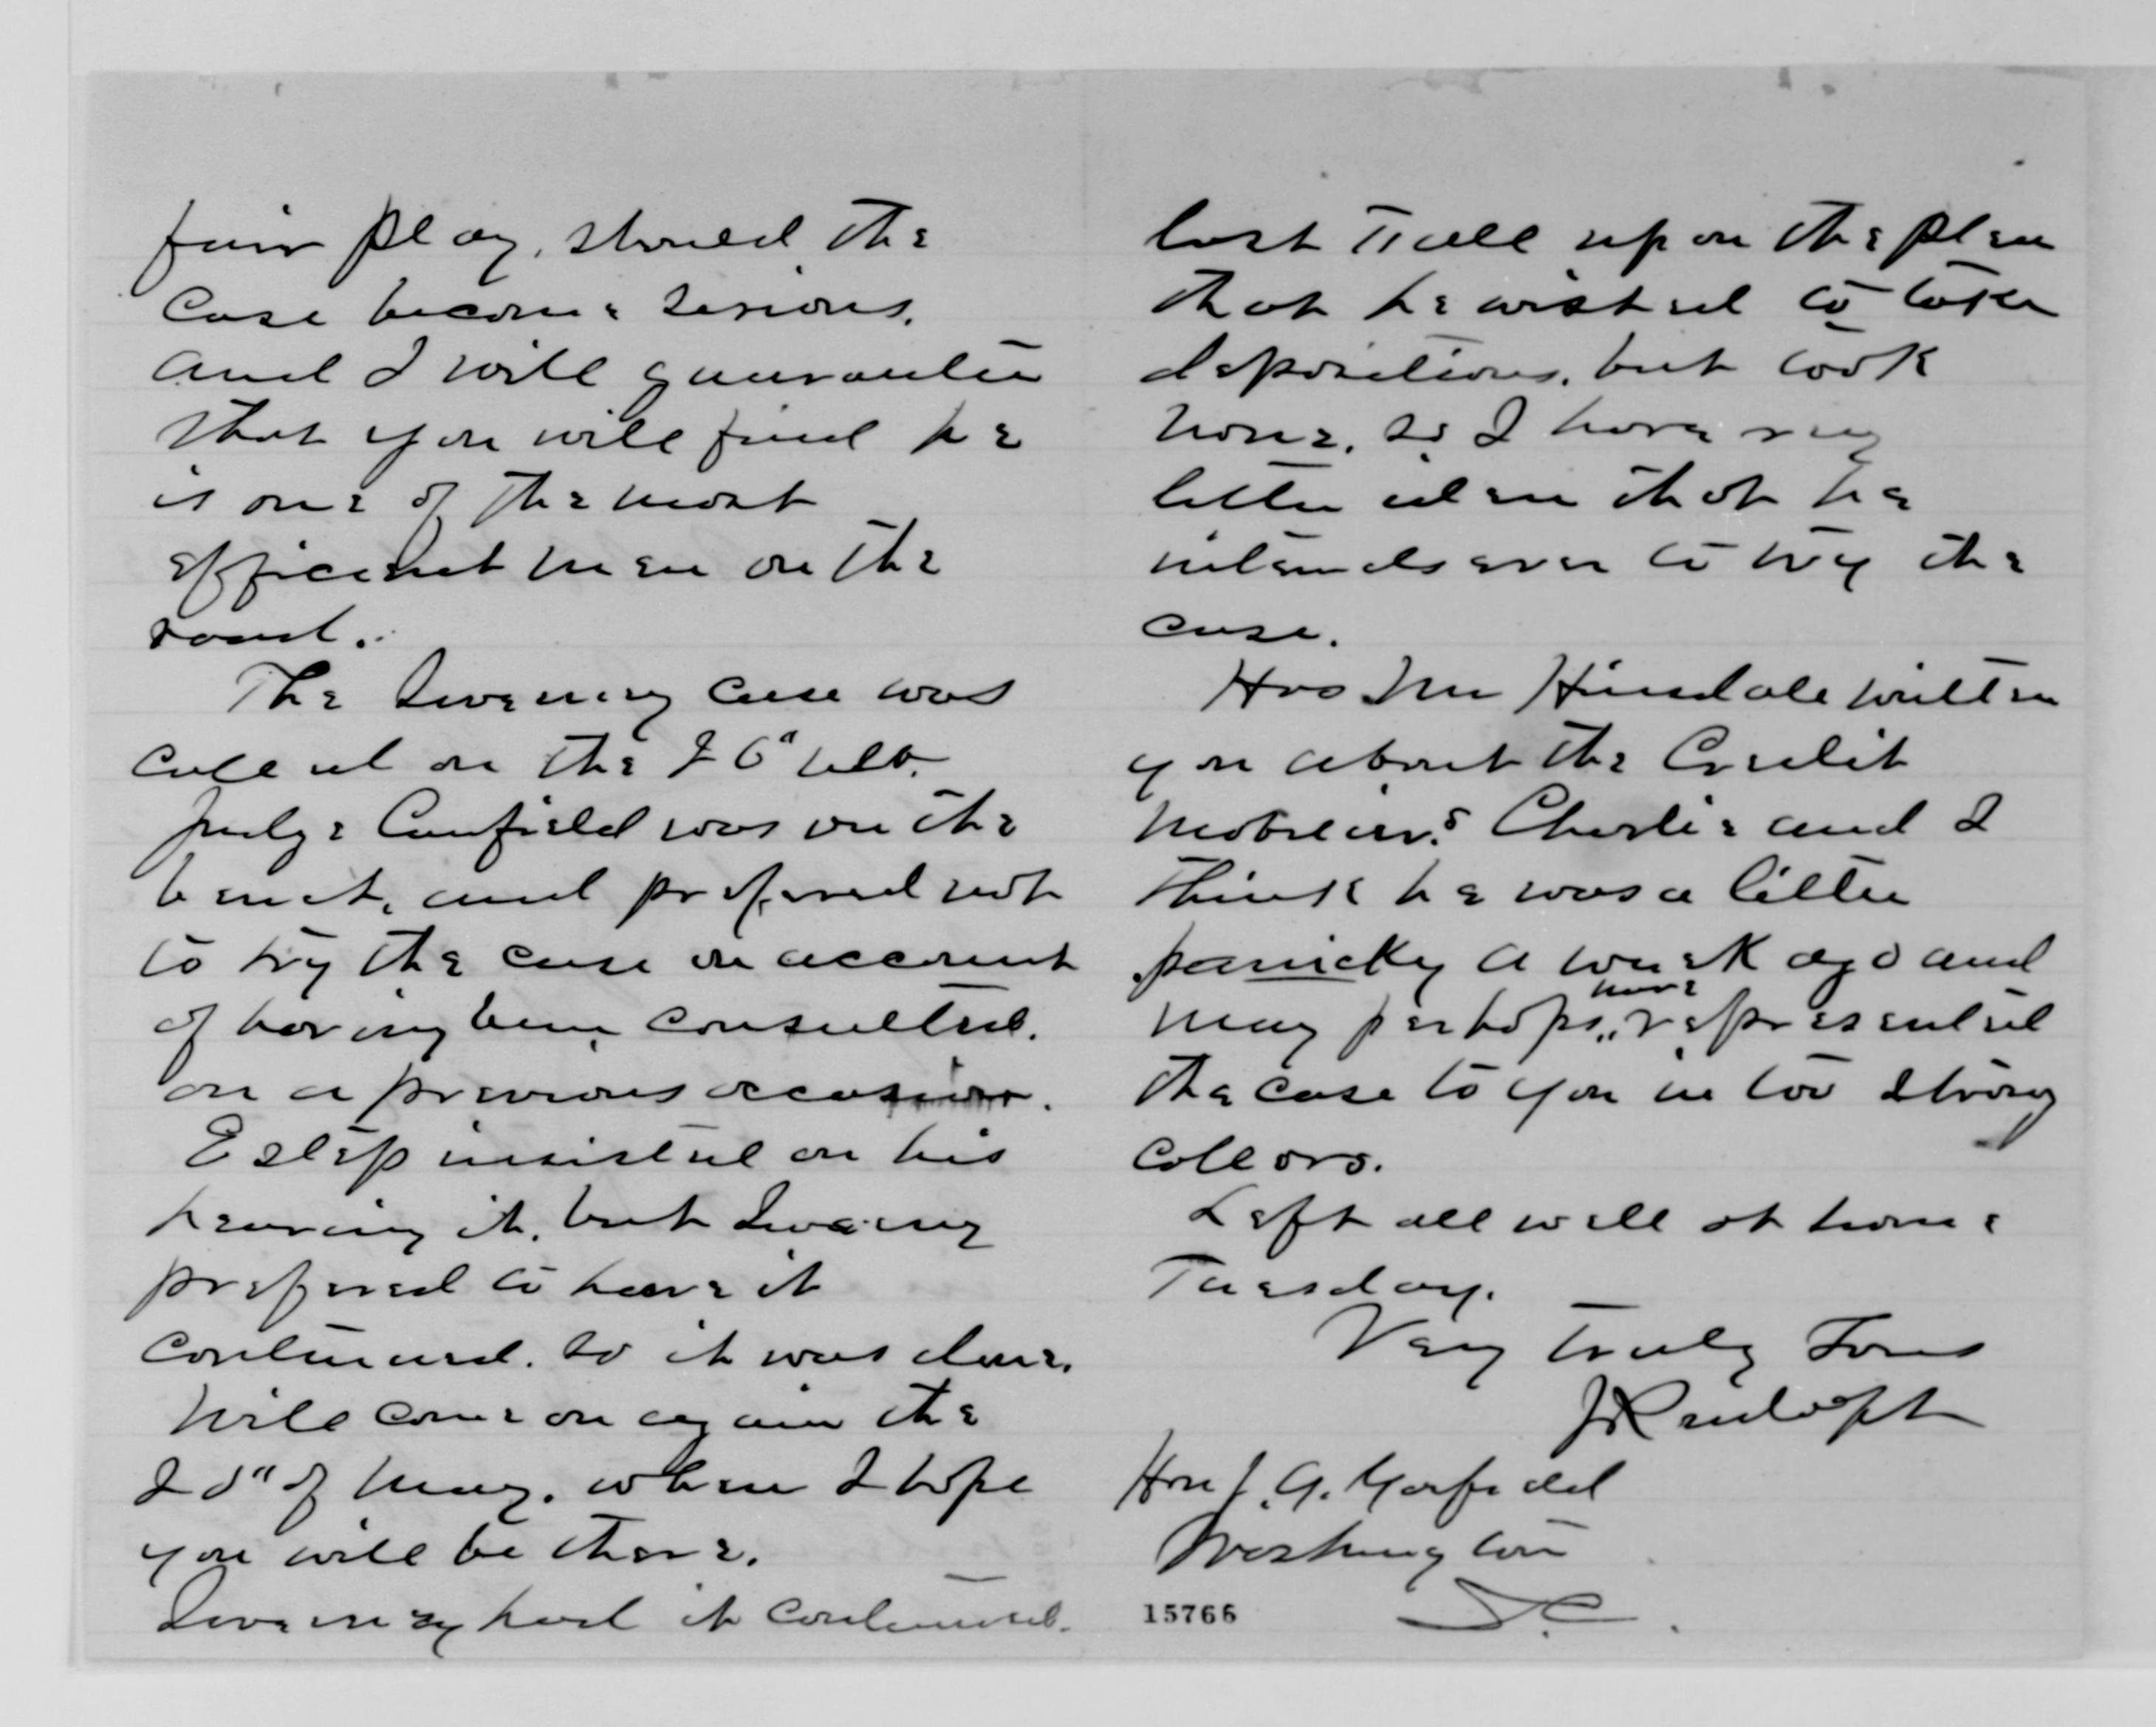 fair play, should the
case become serious.
and I will guarantee
that you will find he
is one of the most
efficient men on the
road.
The Sweeney case was
called on the 26" ulto.
Judge Canfield was on the
bench, and prefered not
to try the case on account
of having been consulted.
on a previous occasion.
Estep insisted on his
hearing it, but Sweeney
prefered to have it
continued. so it was done.
Will come on again the
20" of May. when I hope
you will be there.
Sweeney had it continued.
last Fall upon the plea
that he wished to take
depositions. but took
none. so I have very
little idea that he
intends ever to try the
case.
Has Mr Hinsdale written
you about the Credit
Mobilier? Charlie and I
think he was a little
panicky a week ago and
may perhaps, have represented
the case to you in too strong
collors.
Left all well at home
Tuesday.
Very Truly Yours
J Rudolph
Hon J. A. Garfield
Washington
15766 D.C.